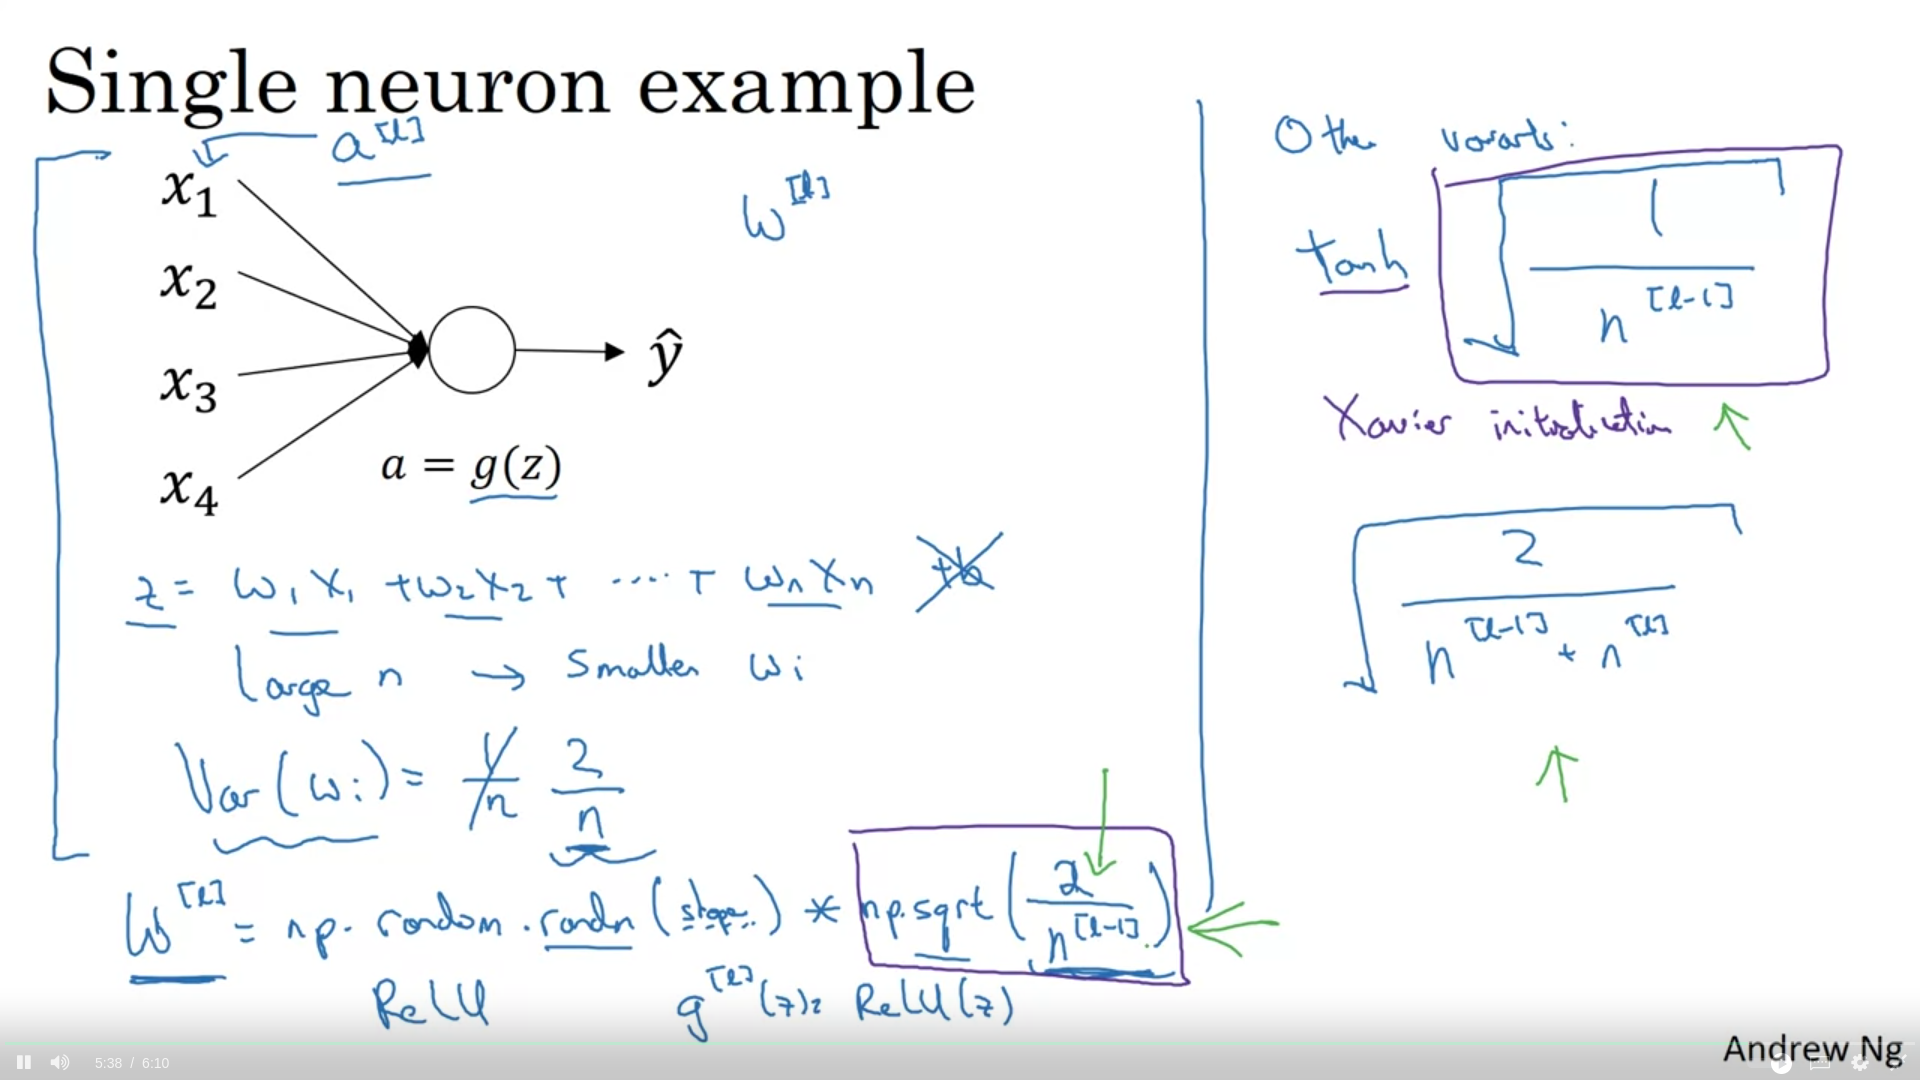 Single neuron example
a^[l]
x₁
w^[l]
x₂
x₃
ŷ
x₄
a = g(z)
z = w₁x₁ + w₂x₂ + ..... + wₙxₙ +b
Large n → Smaller wi
Var(wi) = 1/n 2/n
W^[l] = np.random.randn(shape) * np.sqrt(2/n^[l-1])
ReLU g^[l](z) = ReLU(z)
Other variants:
tanh √(1/n^[l-1])
Xavier initialization
√(2/(n^[l-1] + n^[l]))
Andrew Ng
5:38 / 6:10